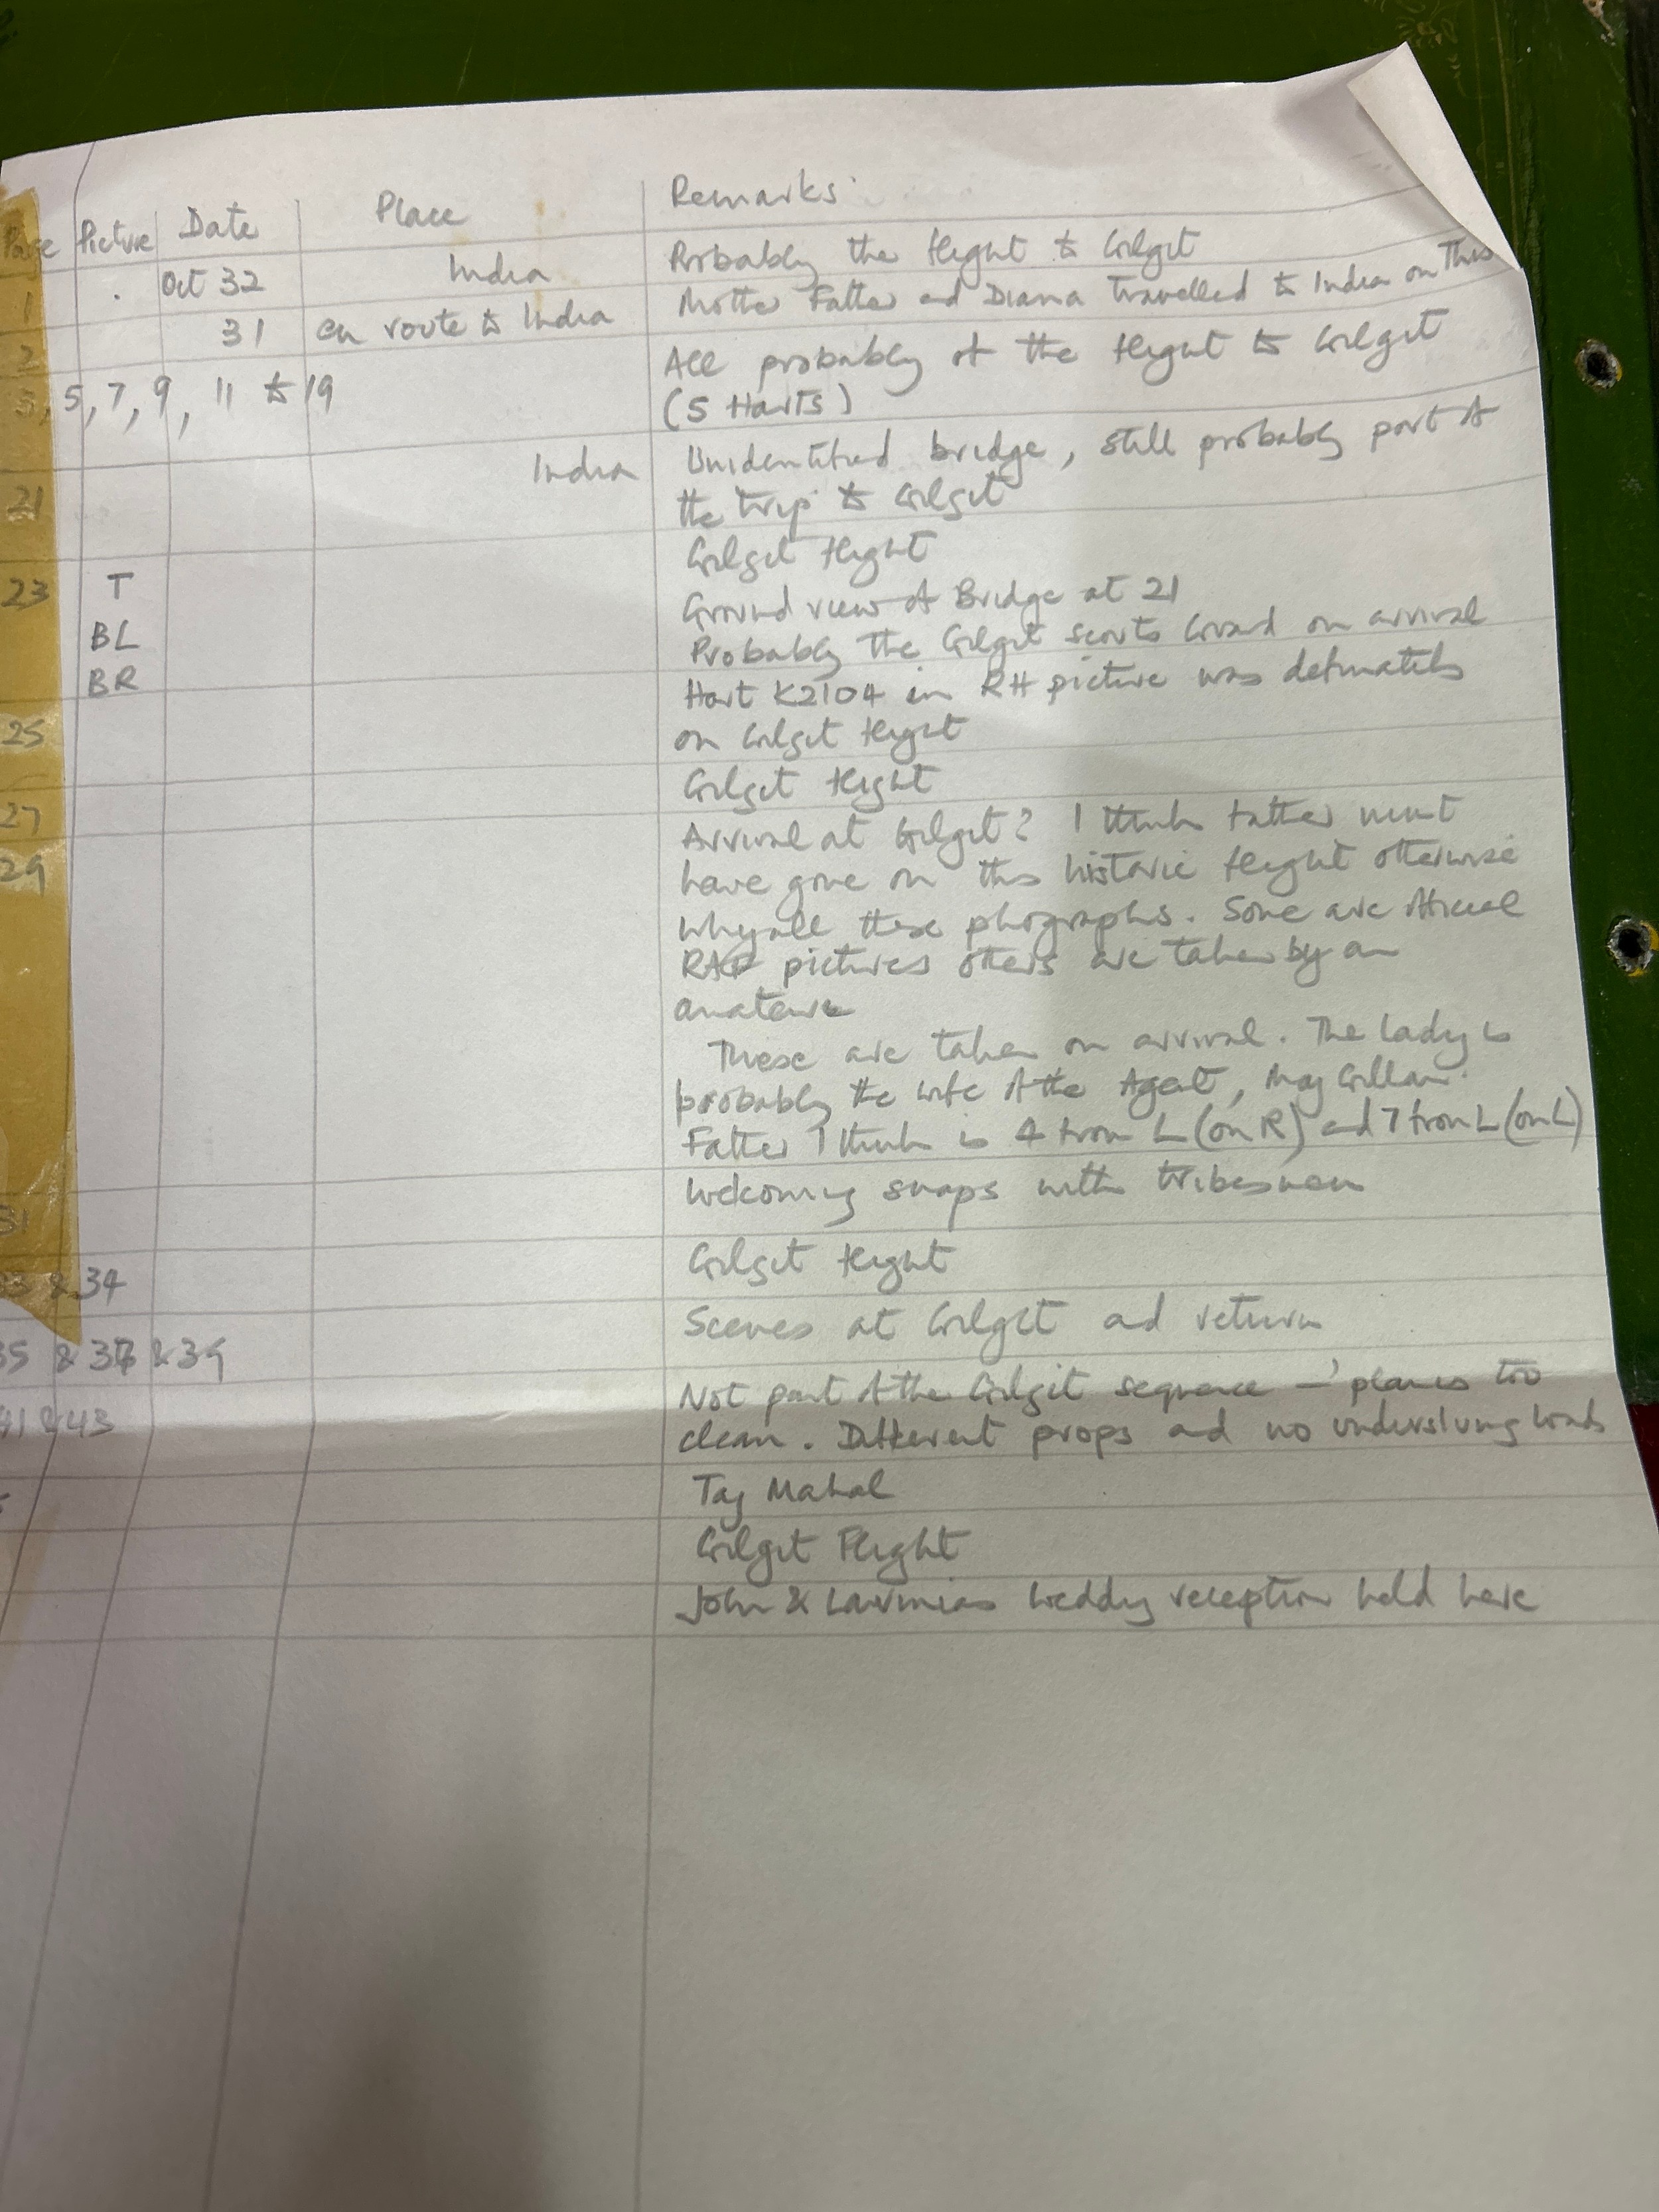 Page Picture Date Place Remarks
1 Oct 32 India Probably the flight to Gilgit
2 31 en route to India Mother Father and Diana travelled to India on this
5, 7, 9, 11 to 19 All probably of the flight to Gilgit
(5 Harts)
21 India Unidentified bridge, still probably part of
the trip to Gilgit
23 T Gilgit flight
BL Ground view of Bridge at 21
BR Probably the Gilgit scouts Guard on arrival
25 Hart K2104 in RH picture was definately
on Gilgit flight
27 Gilgit flight
29 Arrival at Gilgit? I think father must
have gone on this historic flight otherwise
why all these phographs. Some are official
RAF pictures others are taken by an
amateur
These are taken on arrival. The lady is
probably the wife of the Agent, Maj Gillan.
Father I think is 4 from L (on R) and 7 from L (on L)
31 Welcoming snaps with tribesmen
& 34 Gilgit flight
35 & 37 & 39 Scenes at Gilgit and return
41 & 43 Not part of the Gilgit sequence - planes too
clean. Different props and no underslung loads
Taj Mahal
Gilgit Flight
John & Lavinias wedding reception held here